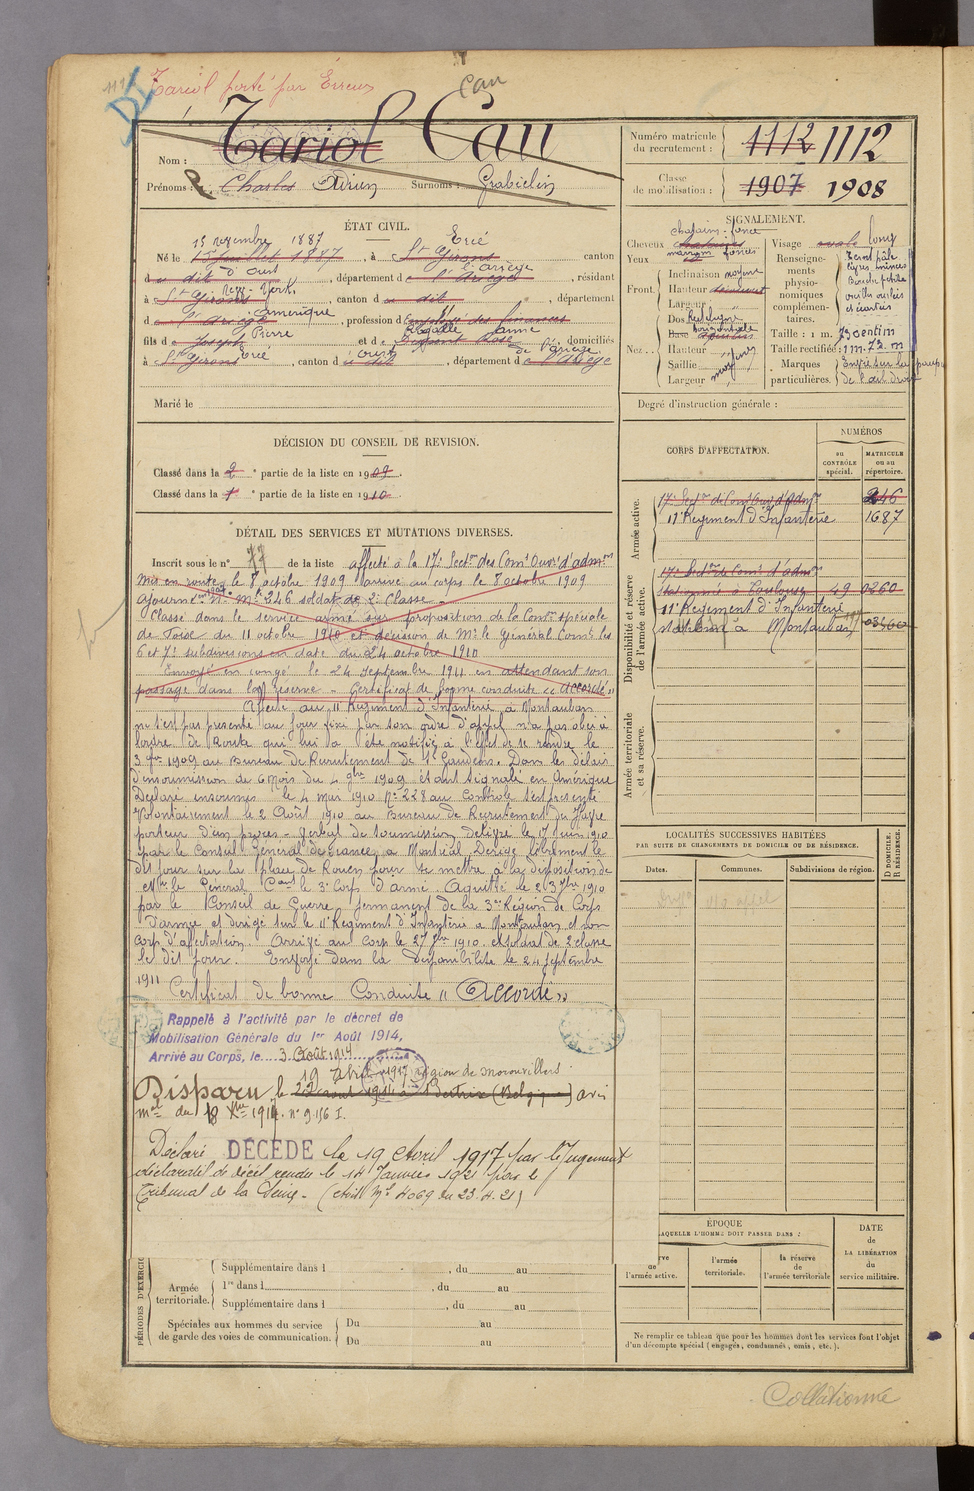 Tariol porté par Erreur
Cau
Nom : Tariol Cau
Prénoms : Charles Adrien Surnoms : Grabiélin
Numéro matricule du recrutement : 1112 1112
Classe de mobilisation : 1907 1908
ÉTAT CIVIL.
15 novembre 1887 Ercé
Né le 15 juillet 1887, à St Girons canton
d'Oust l'Ariège
d u dit, département d e l'Ariège, résidant
New-York
à St Girons, canton d u dit, département
Amérique
d e l'Ariège, profession d employé des finances
Pierre Anne
fils d e Joseph et d e Rose, domiciliés
Ercé Oust de l'Ariège
à St Girons, canton d u dit, département de l'Ariège
Marié le
SIGNALEMENT.
châtains foncé
Cheveux châtains
Yeux marrons foncés
Front. Inclinaison moyenne
Hauteur
Largeur
Nez. Dos Rectiligne
Base horizontale
Hauteur
Saillie
Largeur moy
Visage ovale long
Renseignements physionomiques complémentaires. Teint pâle
lèvres minces
Bouche petite
oreilles ourlées
et écartées
Taille : 1 m. 73 centim
Taille rectifiée : 1 m. 73 m
Marques particulières. sur la paupière
de l'œil droit
Degré d'instruction générale :
DÉCISION DU CONSEIL DE REVISION.
Classé dans la 2e partie de la liste en 1909.
Classé dans la 1e partie de la liste en 1910.
CORPS D'AFFECTATION.
NUMÉROS
AU CONTRÔLE SPÉCIAL.
MATRICULE OU AU RÉPERTOIRE.
Armée active.
17e Sectn de Comis Ouv. d'admn 246
11e Régiment d'Infanterie 1687
Disponibilité et réserve de l'armée active.
17e Sectn de Comis d'admn
stationnée à Toulouse 49 0260
11e Régiment d'Infanterie
stationné à Montauban
Armée territoriale et sa réserve.
DÉTAIL DES SERVICES ET MUTATIONS DIVERSES.
Inscrit sous le n° 77 de la liste affecté à la 17e Sectn des Comis Ouvrs d'admn
Mis en route le 8 octobre 1909 arrivé au corps le 8 octobre 1909
Ajourné en 1908 Nº Mle 246 soldat de 2e Classe
Classé dans le service armé sur proposition de la Comon spéciale
de Foix du 11 octobre 1910 et décision de Mr le Général Comdt les
6 et 7e subdivisions en date du 24 octobre 1910
Envoyé en congé le 24 septembre 1911 en attendant son
passage dans la réserve - Certificat de bonne conduite « accordé »
Affecté au 11e Régiment d'Infanterie à Montauban
ne s'est pas présenté au jour fixé par son ordre d'appel n'a pas obéi à
l'ordre de Route qui lui a été notifié à l'effet de se rendre le
3 9bre 1909 au Bureau de Recrutement de St Gaudens. Dans les délais
d'insoumission de 6 Mois du 4 9bre 1909 étant Signalé en Amérique
Déclaré insoumis le 4 mai 1910 Nº 228 au Contrôle s'est présenté
Volontairement le 2 Août 1910 au Bureau de Recrutement du Havre
porteur d'un procès-Verbal de soumission Délivré le 17 juin 1910
par le Consul Général de France à Montréal. Dirigé librement le
dit jour sur la place de Rouen pour se mettre à la disposition de
Mr le Général Cant le 3e Corps d'armée. Aquitté le 23 7bre 1910
par le Conseil de Guerre permanent de la 3e Région de Corps
d'armée et dirigé sur le 11e Régiment d'Infanterie à Montauban et son
Corps d'affectation. Arrivé au Corps le 27 7bre 1910. et soldat de 2e classe
le dit jour. Envoyé dans la Disponibilité le 24 Septembre
1911
Certificat de bonne Conduite « Accordé »
Rappelé à l'activité par le décret de
Mobilisation Générale du 1er Août 1914,
Arrivé au Corps, le 3 Août 1914
19 Avril 1917 région de Moronvilliers
Disparu le 22 août 1914 à Bertrix (Belgique) avis
mel du 18 Xbre 1914. n° 9.156 I.
Déclaré DÉCÉDÉ le 19 Avril 1917 par le Jugement
déclaratif de décès rendu le 14 Janvier 1921 par le
Tribunal de la Seine - (avis Mel 4069 du 23.4.21)
LOCALITÉS SUCCESSIVES HABITÉES
PAR SUITE DE CHANGEMENTS DE DOMICILE OU DE RÉSIDENCE.
Dates.
Communes.
Subdivisions de région.
D DOMICILE.
R RÉSIDENCE.
ÉPOQUE
LAQUELLE L'HOMME DOIT PASSER DANS :
DATE
de
LA LIBÉRATION
du
service militaire.
rve
de
l'armée active.
l'armée
territoriale.
la réserve
de
l'armée territoriale
PÉRIODES D'EXERCIC
Armée territoriale.
Supplémentaire dans l , du au
1re dans l , du au
Supplémentaire dans l , du au
Spéciales aux hommes du service
de garde des voies de communication.
Du au
Du au
Ne remplir ce tableau que pour les hommes dont les services font l'objet
d'un décompte spécial (engagés, condamnés, omis, etc.).
Collationné